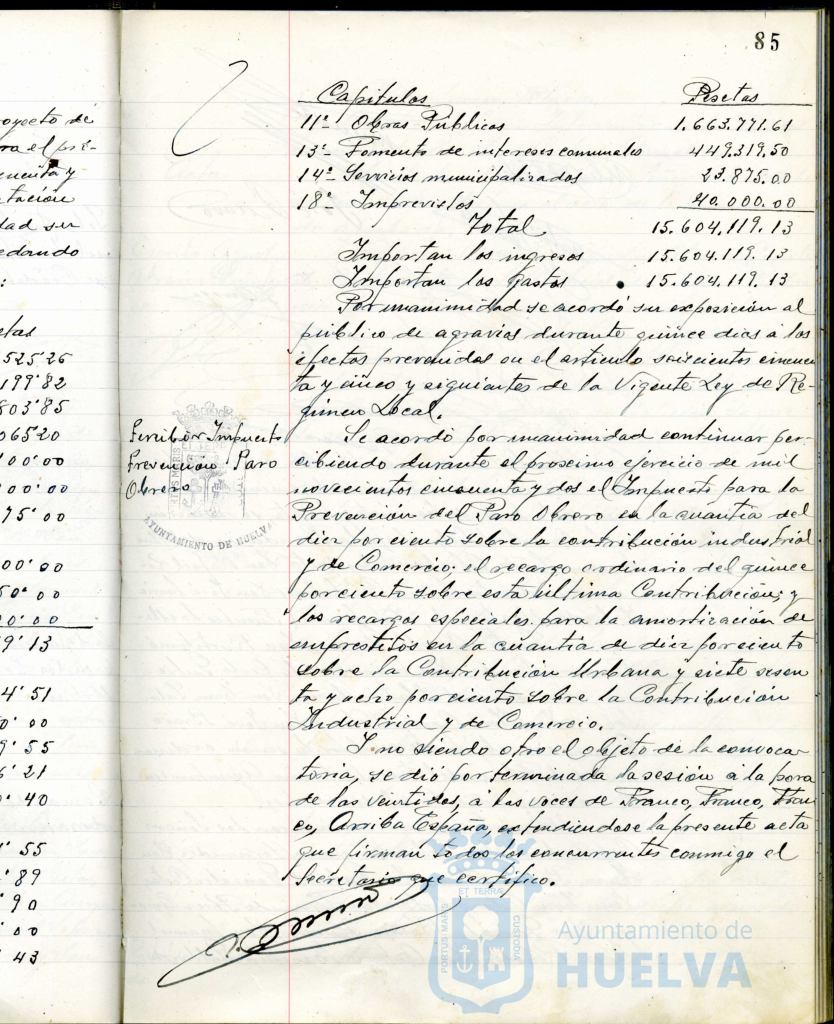 85
oyecto de
ra el pre-
cuenta y
tación
dad su
edando
:
etas
525'26
199'82
803'85
06520
00'00
00'00
75'00
00'00
50'00
00'00
9'13
4'51
0'00
9'55
6'21
0'40
1'55
'89
'90
'00
'43
Capitulos Pesetas
11º- Obras Públicas 1.663.771.61
13º- Fomento de intereses comunales 449.319.50
14º- Servicios municipalizados 23.875.00
18º- Imprevistos 40.000.00
Total 15.604.119.13
Importan los ingresos 15.604.119.13
Importan los gastos 15.604.119.13
Por unanimidad se acordó su exposición al
público de agravios durante quince dias a los
efectos prevenidos en el articulo seiscientos cincuen
ta y cinco y siguientes de la Vigente Ley de Ré-
gimen Local.
Percibir Impuesto
Prevención Paro
Obrero
AYUNTAMIENTO DE HUELVA
Se acordó por unanimidad continuar per-
cibiendo durante el proximo ejercicio de mil
novecientos cincuenta y dos el Impuesto para la
Prevención del Paro Obrero en la cuantia del
diez por ciento sobre la contribución industrial
y de Comercio; el recargo ordinario del quince
porciento sobre esta última Contribución; y
los recargos especiales para la amortización de
emprestitos en la cuantia de diez porciento
sobre la Contribución Urbana y siete sesen
ta y ocho porciento sobre la Contribución
Industrial y de Comercio.
Y no siendo otro el objeto de la convoca-
toria, se dió por terminada la sesión a la hora
de las veintidos, a las voces de Franco, Franco, Fran
co, Arriba España, extendiendose la presente acta
que firman todos los concurrentes conmigo el
Secretario que certifico.
PORTUS MARIS ET TERRAE CUSTODIA
Ayuntamiento de
HUELVA